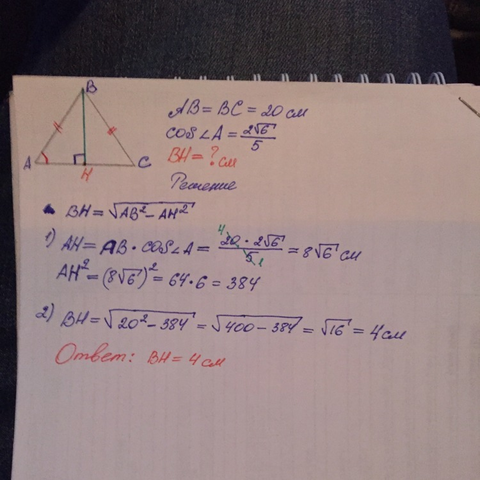 B
A
H
C
AB = BC = 20 см
cos∠A = 2√6/5
BH = ? см
Решение
BH = √(AB² − AH²)
1) AH = AB · cos∠A = (20 · 2√6)/5 = 8√6 см
4
1
AH² = (8√6)² = 64 · 6 = 384
2) BH = √(20² − 384) = √(400 − 384) = √16 = 4 см
Ответ: BH = 4 см